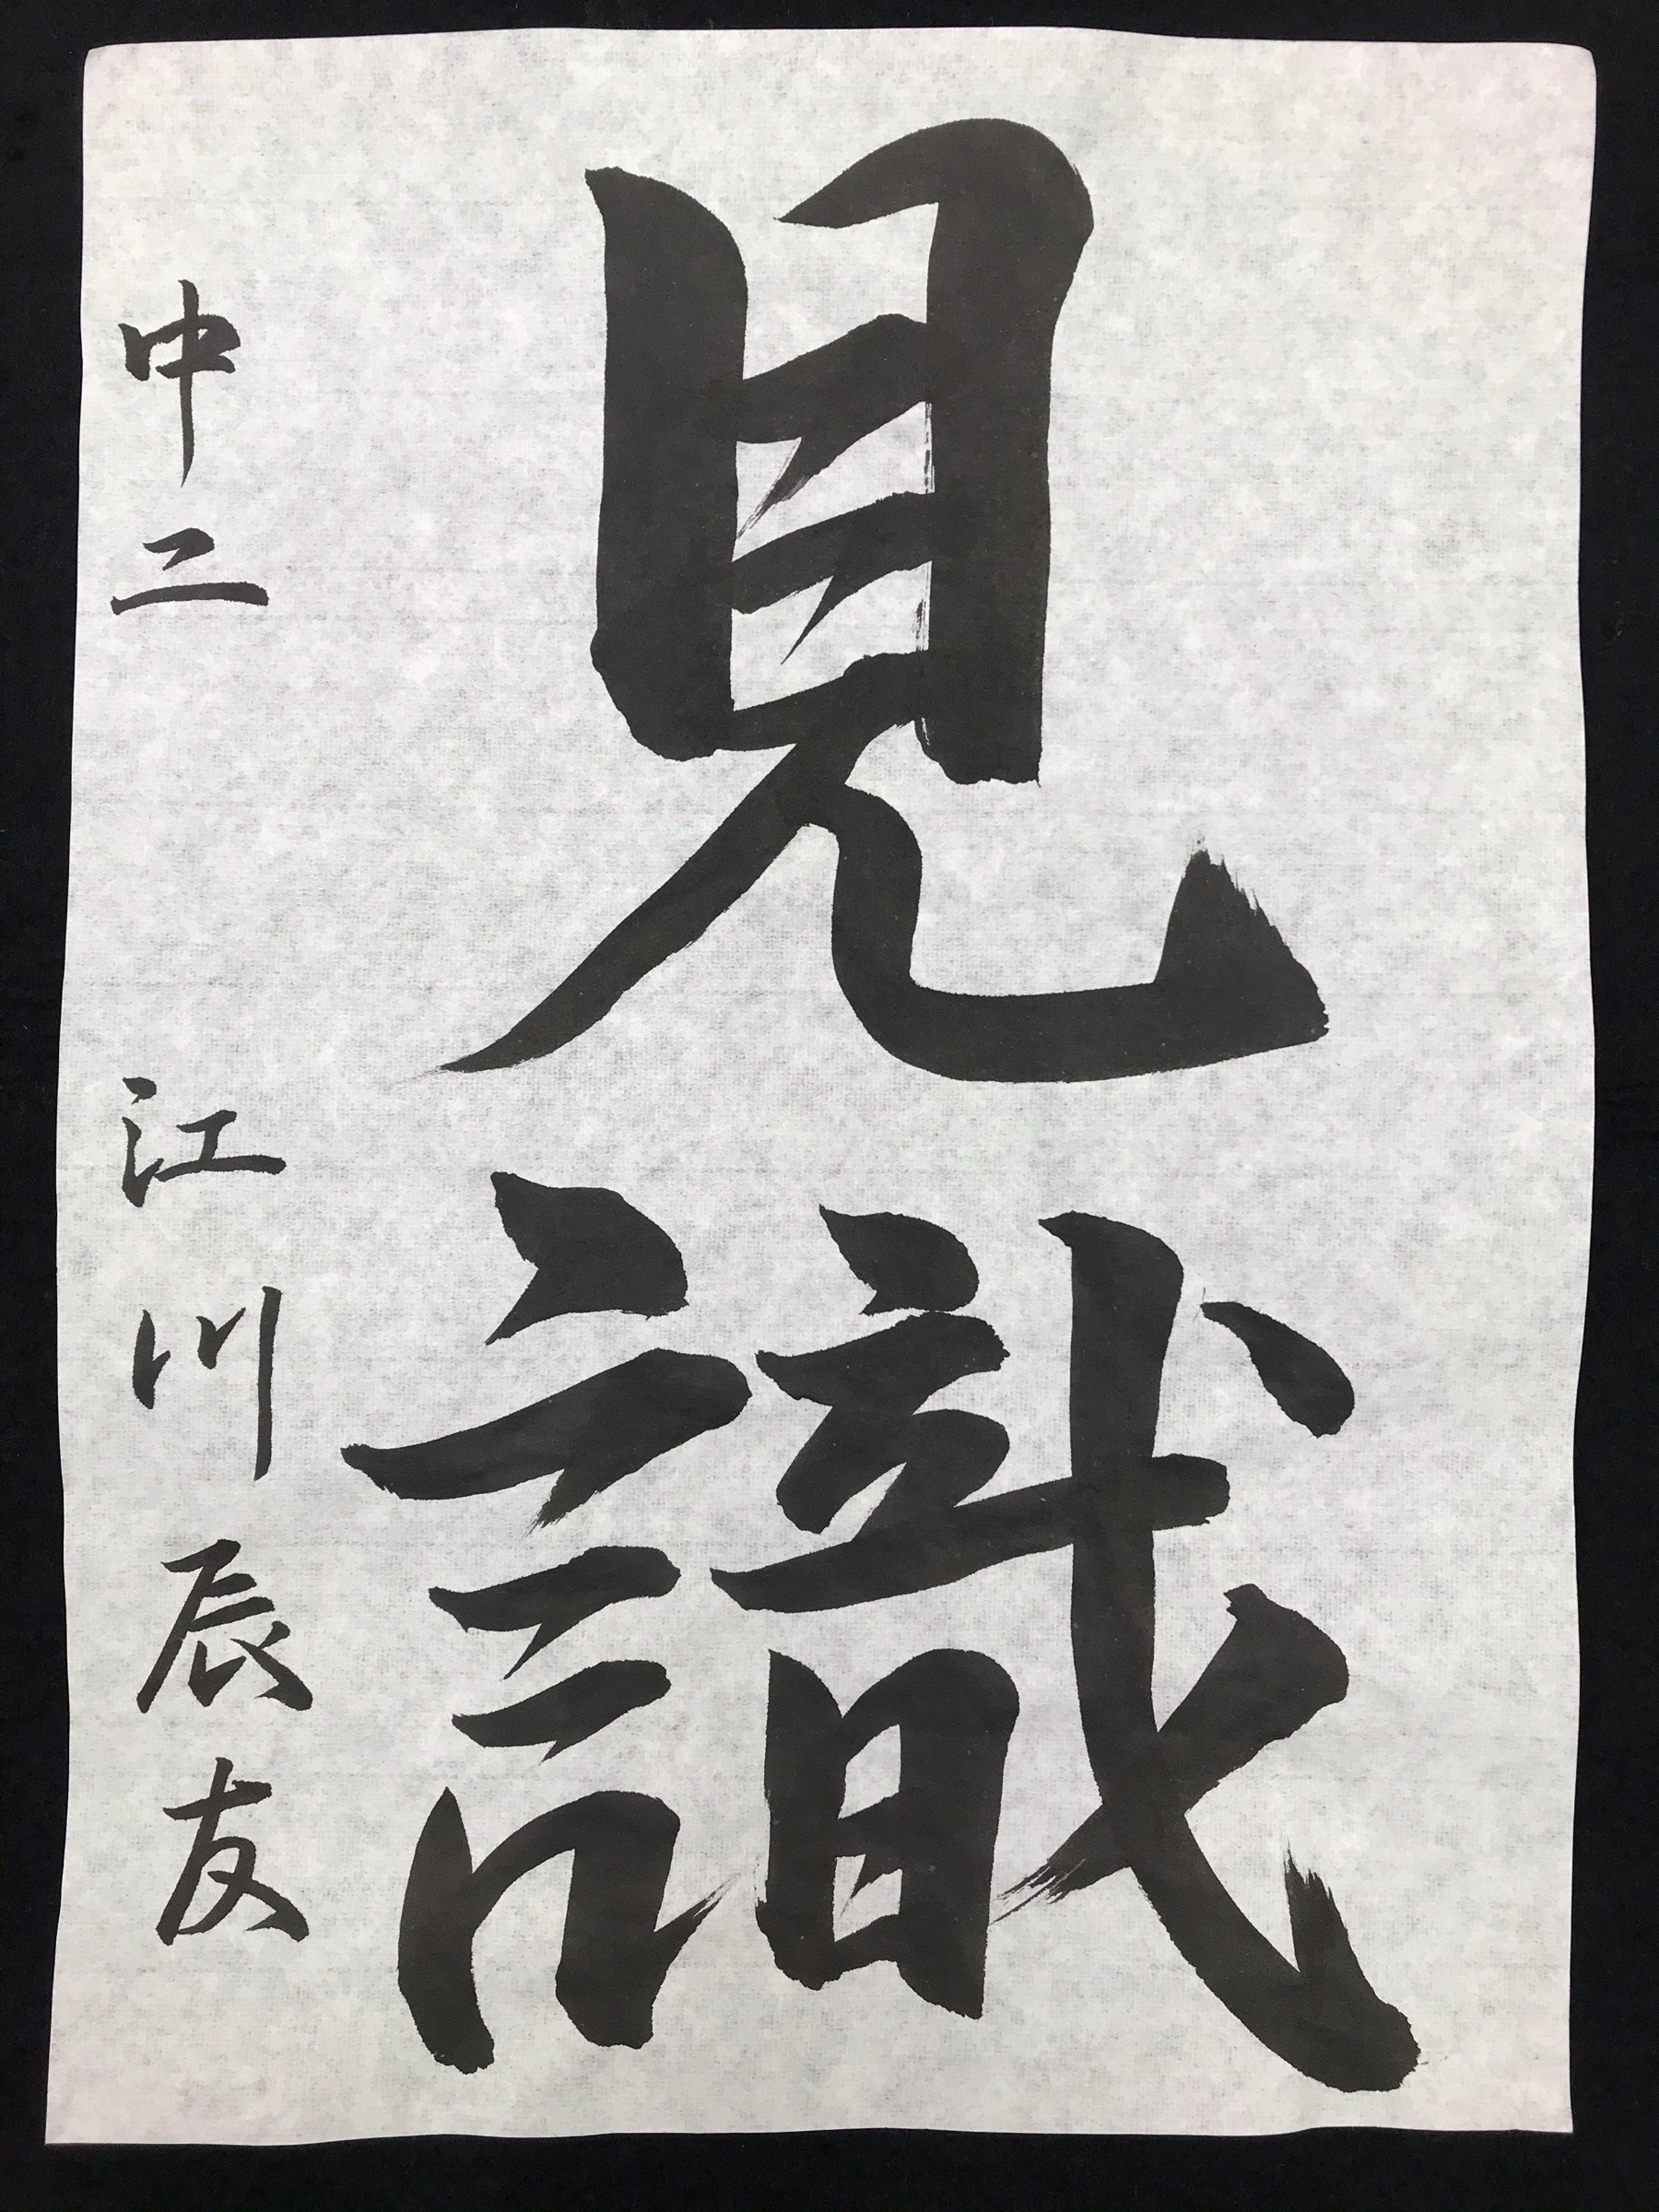 見識
中二 江川辰友